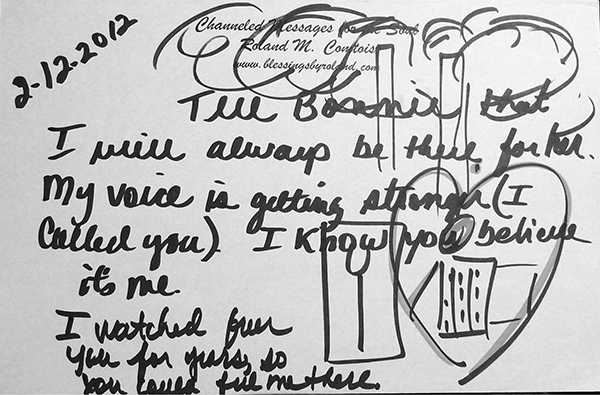 Channeled Messages for the Soul
Roland M. Comtois
www.blessingsbyroland.com
2-12-2012
Tell Bonnie that
I will always be there for her.
My voice is getting stronger (I
called you). I know you believe
it's me.
I watched over
you for years, so
you could me there.